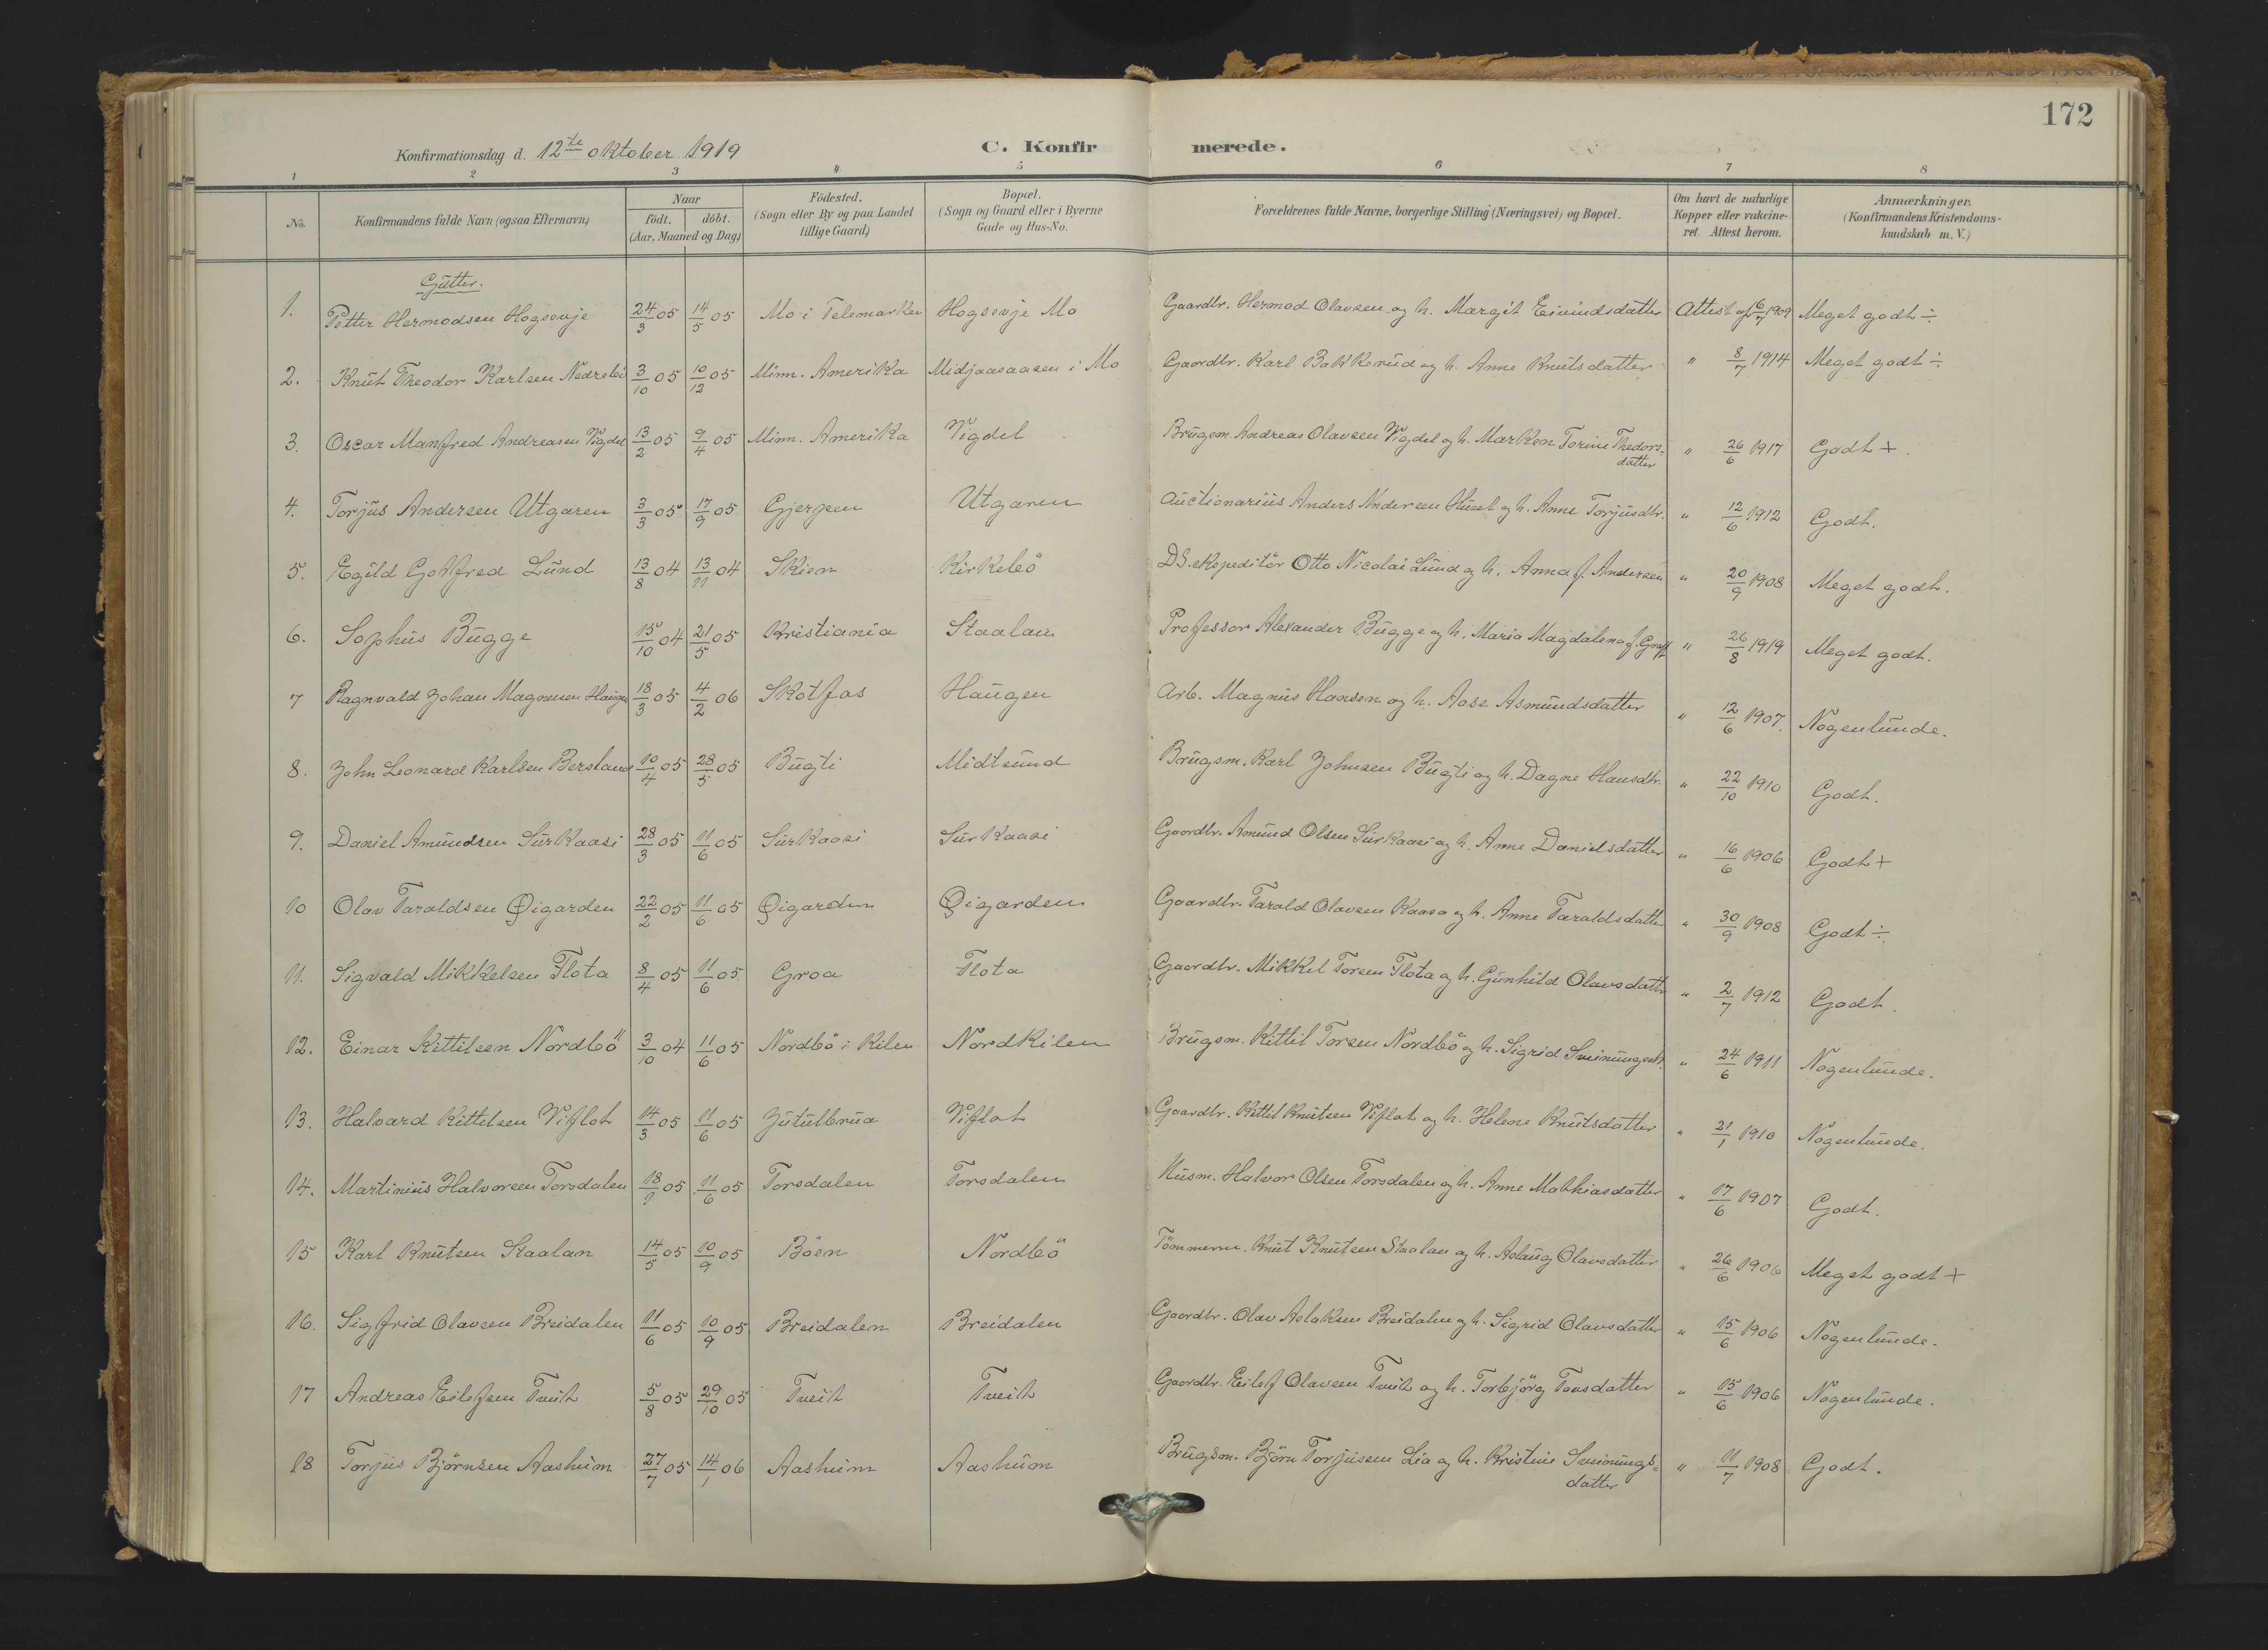 172
Konfirmationsdag d. 12te oktober 1919
C. Konfirmerede.
1 2 3 4 5 6 7 8
No. Konfirmandens fulde Navn (ogsaa Efternavn) Naar födt. döbt. (Aar, Maaned og Dag) Födested. (Sogn eller By og paa Landet tillige Gaard) Bopæl. (Sogn og Gaard eller i Byerne Gade og Hus-No. Forældrenes fulde Navne, borgerlige Stilling (Næringsvei) og Bopæl. Om havt de naturlige Kopper eller vakcineret. Attest herom. Anmærkninger. (Konfirmandens Kristendomskundskab m. V.)
Gutter.
1. Petter Hermodsen Hogsevje 24/3 05 14/5 05 Mo i Telemarken Hogsevje Mo Gaardbr. Hermod Olavsen og h. Margit Eivindsdatter Attest af 6/7 1909 Meget godt ÷
2. Knut Theodor Karlsen Nedrebö 3/10 05 10/12 05 Minn. Amerika Midjaasaasen i Mo Gaardbr. Karl Bakkerud og h. Anne Knutsdatter " 8/7 1914 Meget godt ÷
3. Oscar Manfred Andreasen Vigdel 13/2 05 9/4 05 Minn. Amerika Vigdel Brugsm. Andreas Olavsen Vigdel og h. Marken Torine Thedorsdatter " 26/6 1917 Godt +.
4. Torjus Andersen Utgaren 3/3 05 17/9 05 Gjerpen Utgaren Auctionarius Anders Andersen Huset og h. Anne Torjusdtr. " 12/6 1912 Godt.
5. Egild Gotfred Lund 13/8 04 13/11 04 Skien Kirkebö DS. ekspeditör Otto Nicolai Lund og h. Anna f. Andersen " 20/9 1908 Meget godt.
6. Sophus Bugge 15/10 04 21/5 05 Kristiania Staalan Professor Alexander Bugge og h. Maria Magdalena f. Graff " 26/8 1919 Meget godt.
7 Ragnvald Johan Magnusen Haugen 18/3 05 4/2 06 Skotfos Haugen Arb. Magnus Hansen og h. Aase Asmundsdatter " 12/6 1907. Nogenlunde.
8. John Leonard Karlsen Bersland 10/4 05 28/5 05 Bugti Midtsund Brugsm. Karl Johnsen Bugti og h. Dagne Hansdtr. " 22/10 1910 Godt.
9. Daniel Amundsen Surkaasi 28/3 05 11/6 05 Surkaasi Surkaasi Gaardbr. Amund Olsen Surkaasi og h. Anne Danielsdatter " 16/6 1906 Godt +
10 Olav Taraldsen Öigarden 22/2 05 11/6 05 Öigarden Öigarden Gaardbr. Tarald Olavsen Kaasa og h. Anne Taraldsdatter " 30/9 1908 Godt ÷
11. Sigvald Mikkelsen Flota 8/4 05 11/6 05 Groa Flota Gaardbr. Mikkel Torsen Flota og h. Gunhild Olavsdatter " 2/7 1912 Godt.
12. Einar Kittilsen Nordbö 3/10 04 11/6 05 Nordbö i Kilen Nordkilen Brugsm. Kittil Torsen Nordbö og h. Sigrid Sveinungsdt. " 24/6 1911 Nogenlunde.
13. Halvard Kittilsen Viflot 14/3 05 11/6 05 Jutulbrua Viflot Gaardbr. Kittil Knutsen Viflot og h. Helene Knutsdatter " 21/1 1910 Nogenlunde.
14. Martinius Halvorsen Torsdalen 18/1 05 11/6 05 Torsdalen Torsdalen Husm. Halvor Olsen Torsdalen og h. Anne Mathiasdatter " 17/6 1907 Godt.
15 Karl Knutsen Staalan 14/5 05 10/9 05 Böen Nordbö Tömmerm. Knut Knutsen Staalan og h. Aslaug Olavsdatter " 26/6 1906 Meget godt +
16. Sigfrid Olavsen Breidalen 11/6 05 10/9 05 Breidalen Breidalen Gaardbr. Olav Aslaksen Breidalen og h. Sigrid Olavsdatter " 15/6 1906 Nogenlunde.
17 Andreas Eilefsen Tveit 5/8 05 29/10 05 Tveit Tveit Gaardbr. Eilef Olavsen Tveit og h. Torbjörg Tovsdatter " 15/6 1906 Nogenlunde.
18 Torjus Björnsen Aasheim 27/7 05 14/1 06 Aasheim Aasheim Brugsm. Björn Torjusen Lia og h. Kristine Sveinungsdatter " 11/7 1908 Godt.